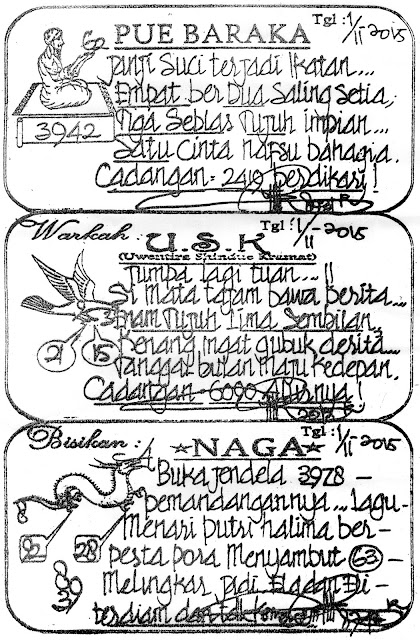 PUE BARAKA
Tgl : 1/11 2015
60
3942
Janji Suci terjadi Ikatan...
Empat ber Dua Saling Setia,
Tiga Seblas Tujuh impian...
Satu Cinta nafsu bahagia.
Cadangan = 2419 berdikari!
Warkah :
U.S.K
Tgl : 1/11 - 2015
(Uwentira Spindue Kramat)
Tumba lagi tuan...!!
Si mata tajam bawa berita...
Enam Tujuh Lima Sembilan..
Kenang ingat gubuk derita...
Tanggal bulan Maju Kedepan.
Cadangan - 6090
21
15
Bisikan :
NAGA
Tgl : 1/11 - 2015
Buka Jendela 3978 -
pemandangannya... lagu-
Menari putri halima ber-
pesta pora Menyambut 63 -
Melingkar
terdiam dan tak
92
28